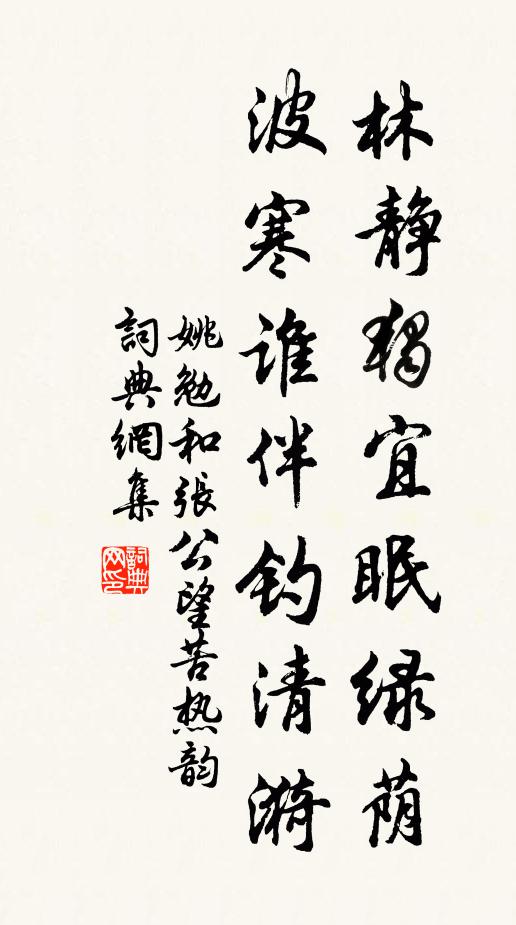 林静獨宜眠绿荫
波寒谁伴钓清漪
姚勉和張公望苦热韵
詞典網集
詞典网印